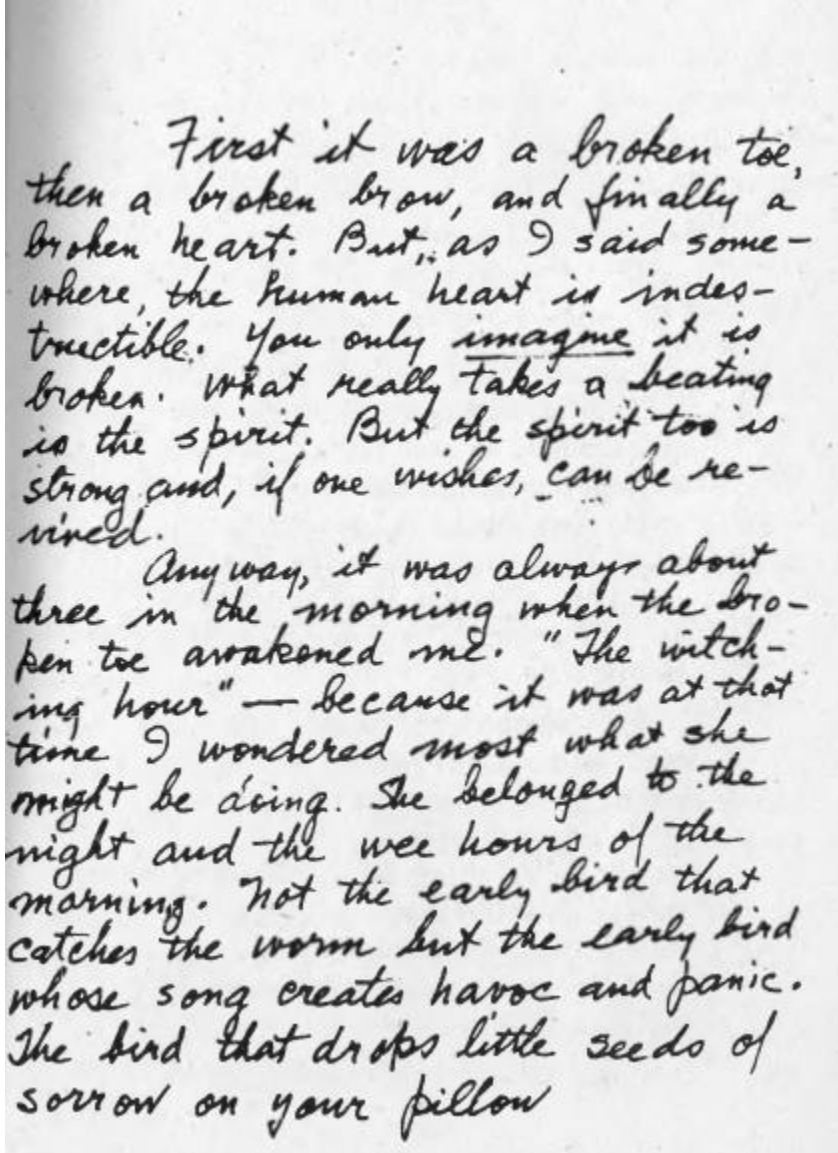 First it was a broken toe,
then a broken brow, and finally a
broken heart. But, as I said some-
where, the human heart is indes-
tructible. You only imagine it is
broken. What really takes a beating
is the spirit. But the spirit too is
strong and, if one wishes, can be re-
vived.
Anyway, it was always about
three in the morning when the bro-
ken toe awakened me. "The witch-
ing hour" — because it was at that
time I wondered most what she
might be doing. She belonged to the
night and the wee hours of the
morning. Not the early bird that
catches the worm but the early bird
whose song creates havoc and panic.
The bird that drops little seeds of
sorrow on your pillow